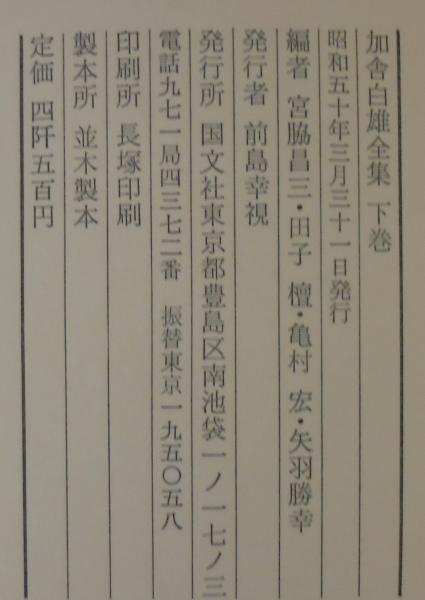 加舎白雄全集 下巻
昭和五十年三月三十一日発行
編者 宮脇昌三・田子 檀・亀村 宏・矢羽勝幸
発行者 前島幸視
発行所 国文社東京都豊島区南池袋一ノ一七ノ三
電話九七一局四三七二番 振替東京一九五〇五八
印刷所 長塚印刷
製本所 並木製本
定価 四阡五百円